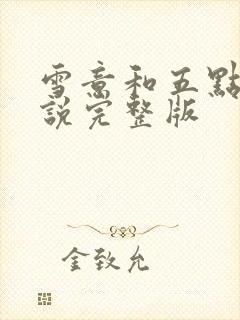 雪意和五點
說完整版
金致允